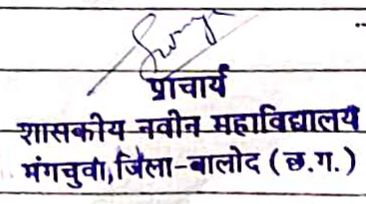 प्राचार्य
शासकीय नवीन महाविद्यालय
मंगचुवा, जिला-बालोद (छ.ग.)